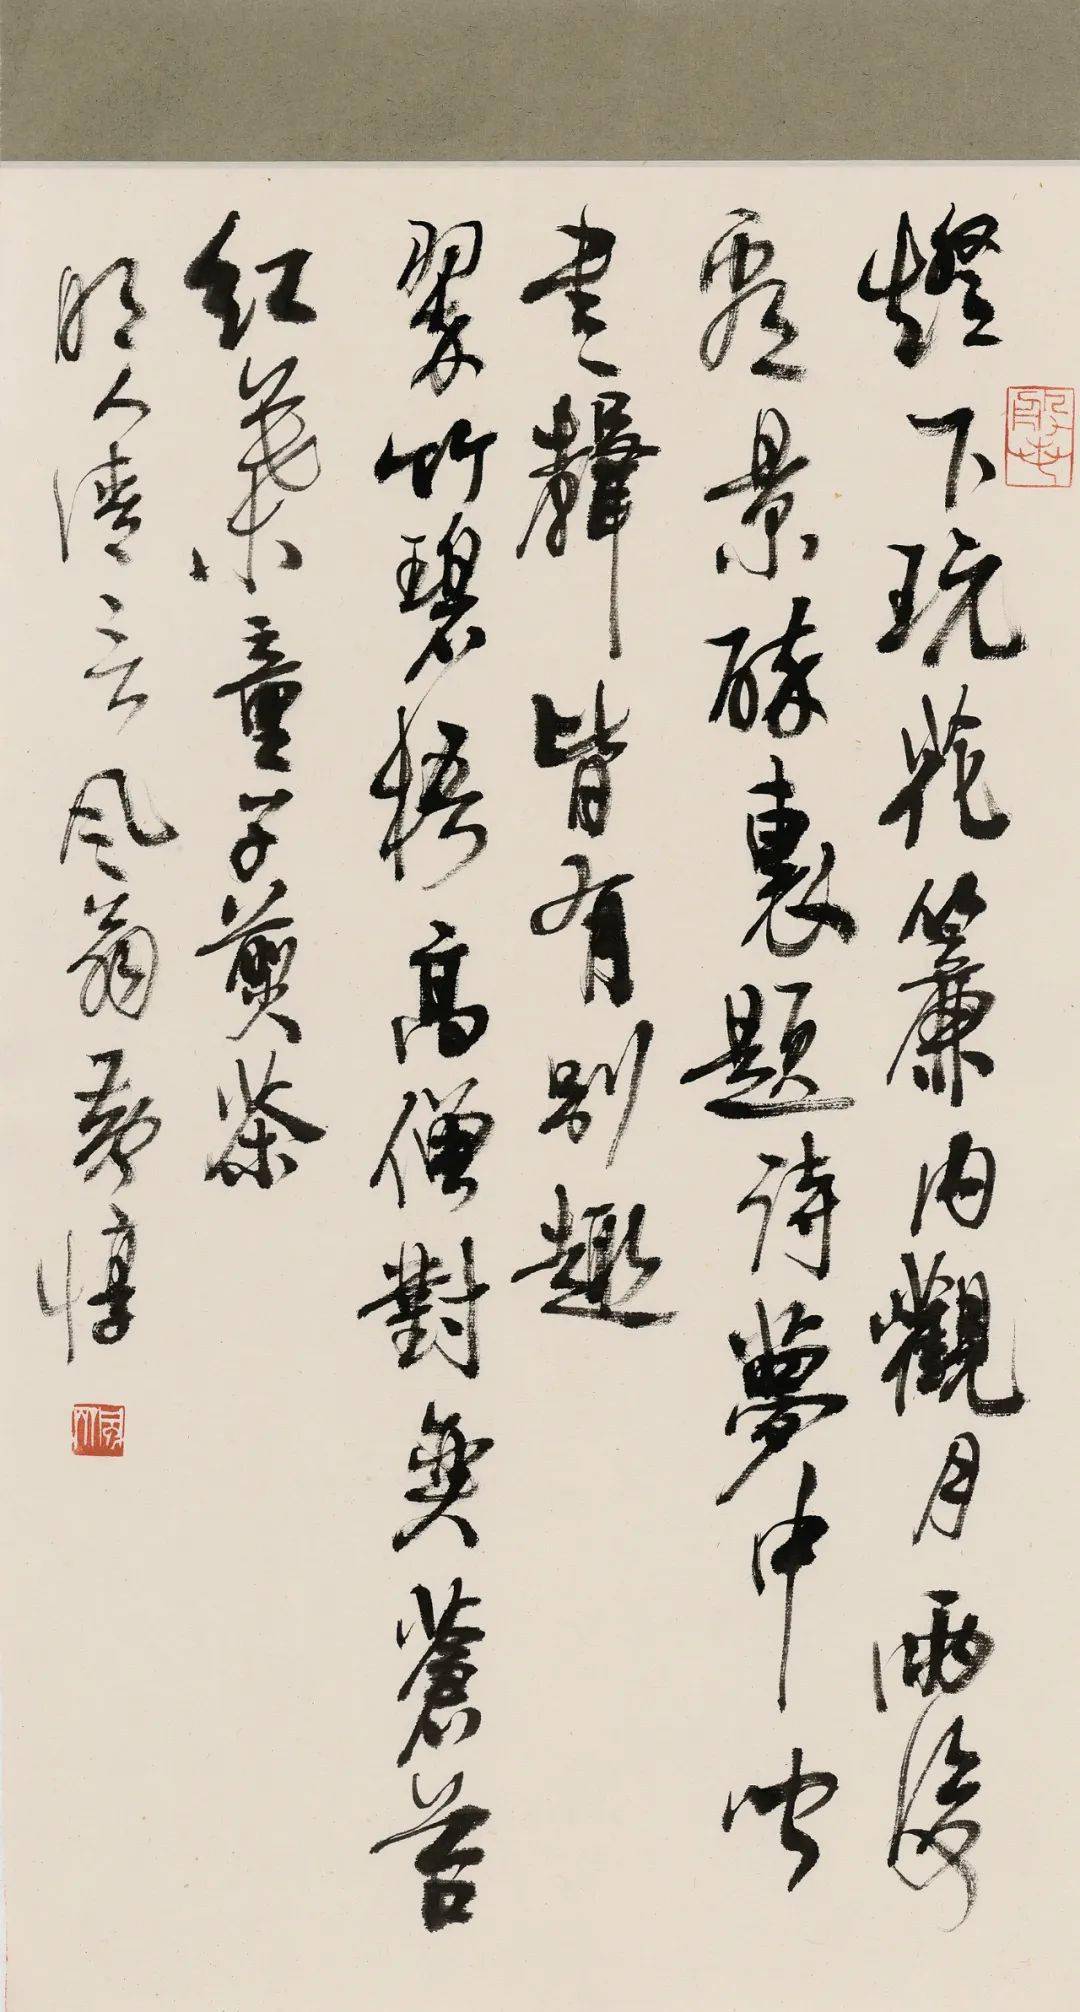 燈下玩花簾內觀月雨後
景醉裏題詩夢中聞
書聲皆有別趣
翠竹碧梧高僧對弈蒼苔
紅葉童子煎茶
明人清言風翁黃惇